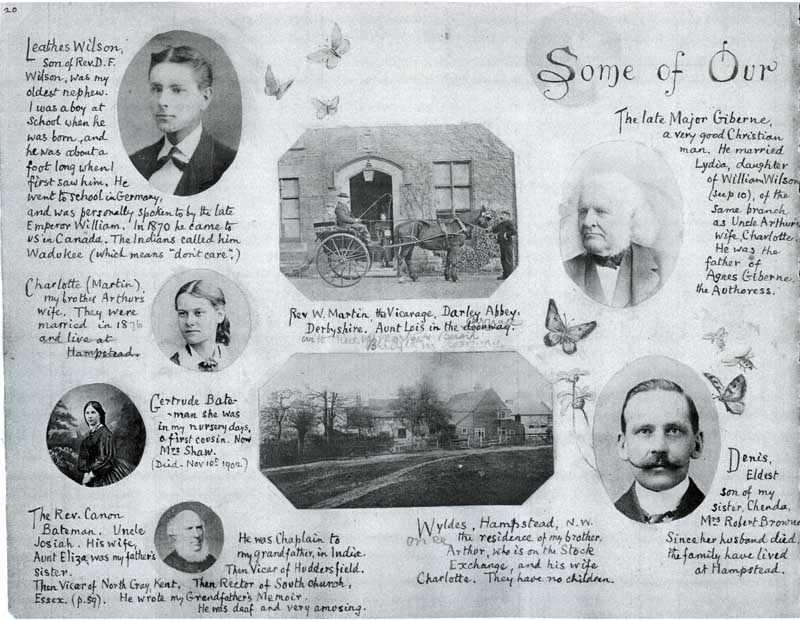 20
Some of Our
Leathes Wilson,
Son of Rev. D. F.
Wilson, was my
oldest nephew.
I was a boy at
School when he
was born, and
he was about a
foot long when I
first saw him. He
went to school in Germany,
and was personally spoken to by the late
Emperor William. In 1870 he came to
us in Canada. The Indians called him
Wadokee (which means "don't care".)
The late Major Giberne,
a very good Christian
man. He married
Lydia, daughter
of William Wilson
(sup 10), of the
same branch
as Uncle Arthur's
wife, Charlotte.
He was the
father of
Agnes Giberne,
the Authoress.
Rev W. Martin, the Vicarage, Darley Abbey.
Derbyshire. Aunt Lois in the doorway.
with
Charlotte (Martin),
my brother Arthur's
wife. They were
married in 1876
and live at
Hampstead.
Gertrude Bate-
-man she was
in my nursery days,
a first cousin. Now
Mrs Shaw.
(Died. Nov 10th 1902)
Denis,
Eldest
son of my
sister, Chenda,
Mrs Robert Browne
Since her husband died,
the family have lived
at Hampstead.
The Rev. Canon
Bateman. Uncle
Josiah. His wife,
Aunt Eliza, was my father's
Sister.
He was Chaplain to
my grandfather, in India.
Then Vicar of Huddersfield.
Then Vicar of North Cray, Kent. Then Rector of South church,
Essex. (p.59). He wrote my Grandfather's Memoir.
He was deaf and very amusing.
Wyldes, Hampstead, N.W.
once the residence of my brother,
Arthur, who is on the Stock
Exchange, and his wife
Charlotte. They have no children.